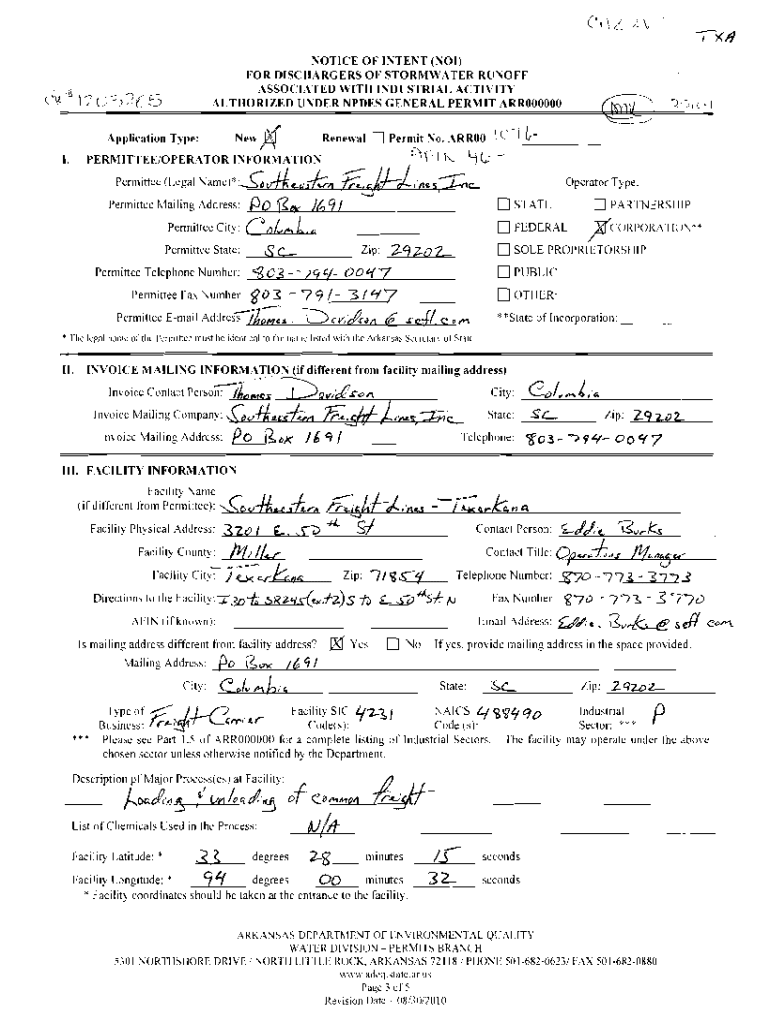 TXA
NOTICE OF INTENT (NOI)
FOR DISCHARGERS OF STORMWATER RUNOFF
ASSOCIATED WITH INDUSTRIAL ACTIVITY
AUTHORIZED UNDER NPDES GENERAL PERMIT ARR000000
Application Type: New X Renewal Permit No. ARR00
I. PERMITTEE/OPERATOR INFORMATION
Permittee (Legal Name)*: Southeastern Freight Lines, Inc Operator Type:
Permittee Mailing Address: PO Box 1691 STATE PARTNERSHIP
Permittee City: Columbia FEDERAL X CORPORATION**
Permittee State: SC Zip: 29202 SOLE PROPRIETORSHIP
Permittee Telephone Number: 803-794-0047 PUBLIC
Permittee Fax Number 803-791-3147 OTHER:
Permittee E-mail Address Thomas.Davidson@sefl.com **State of Incorporation:
* The legal name of the Permittee must be identical to the name listed with the Arkansas Secretary of State
II. INVOICE MAILING INFORMATION (if different from facility mailing address)
Invoice Contact Person: Thomas Davidson City: Columbia
Invoice Mailing Company: Southeastern Freight Lines, Inc State: SC Zip: 29202
Invoice Mailing Address: PO Box 1691 Telephone: 803-794-0047
III. FACILITY INFORMATION
Facility Name
(if different from Permittee): Southeastern Freight Lines - Texarkana
Facility Physical Address: 3201 E. 50th St Contact Person: Eddie Burks
Facility County: Miller Contact Title: Operations Manager
Facility City: Texarkana Zip: 71854 Telephone Number: 870-773-3773
Directions to the Facility: I30 to SR245(ext2)S to E. 50th St N Fax Number 870-773-3770
AFIN (if known): Email Address: Eddie.Burks@sefl.com
Is mailing address different from facility address? X Yes No If yes, provide mailing address in the space provided.
Mailing Address: PO Box 1691
City: Columbia State: SC Zip: 29202
Type of Facility SIC NAICS Industrial
Business: Freight Carrier Code(s): 4231 Code (s): 488490 Sector: *** P
*** Please see Part 1.5 of ARR000000 for a complete listing of Industrial Sectors. The facility may operate under the above
chosen sector unless otherwise notified by the Department.
Description of Major Process(es) at Facility:
Loading & unloading of common freight
List of Chemicals Used in the Process: N/A
Facility Latitude: * 33 degrees 28 minutes 15 seconds
Facility Longitude: * 94 degrees 00 minutes 32 seconds
* Facility coordinates should be taken at the entrance to the facility.
ARKANSAS DEPARTMENT OF ENVIRONMENTAL QUALITY
WATER DIVISION – PERMITS BRANCH
5301 NORTHSHORE DRIVE / NORTH LITTLE ROCK, ARKANSAS 72118 / PHONE 501-682-0623/ FAX 501-682-0880
www.adeq.state.ar.us
Page 3 of 5
Revision Date - 08/30/2010